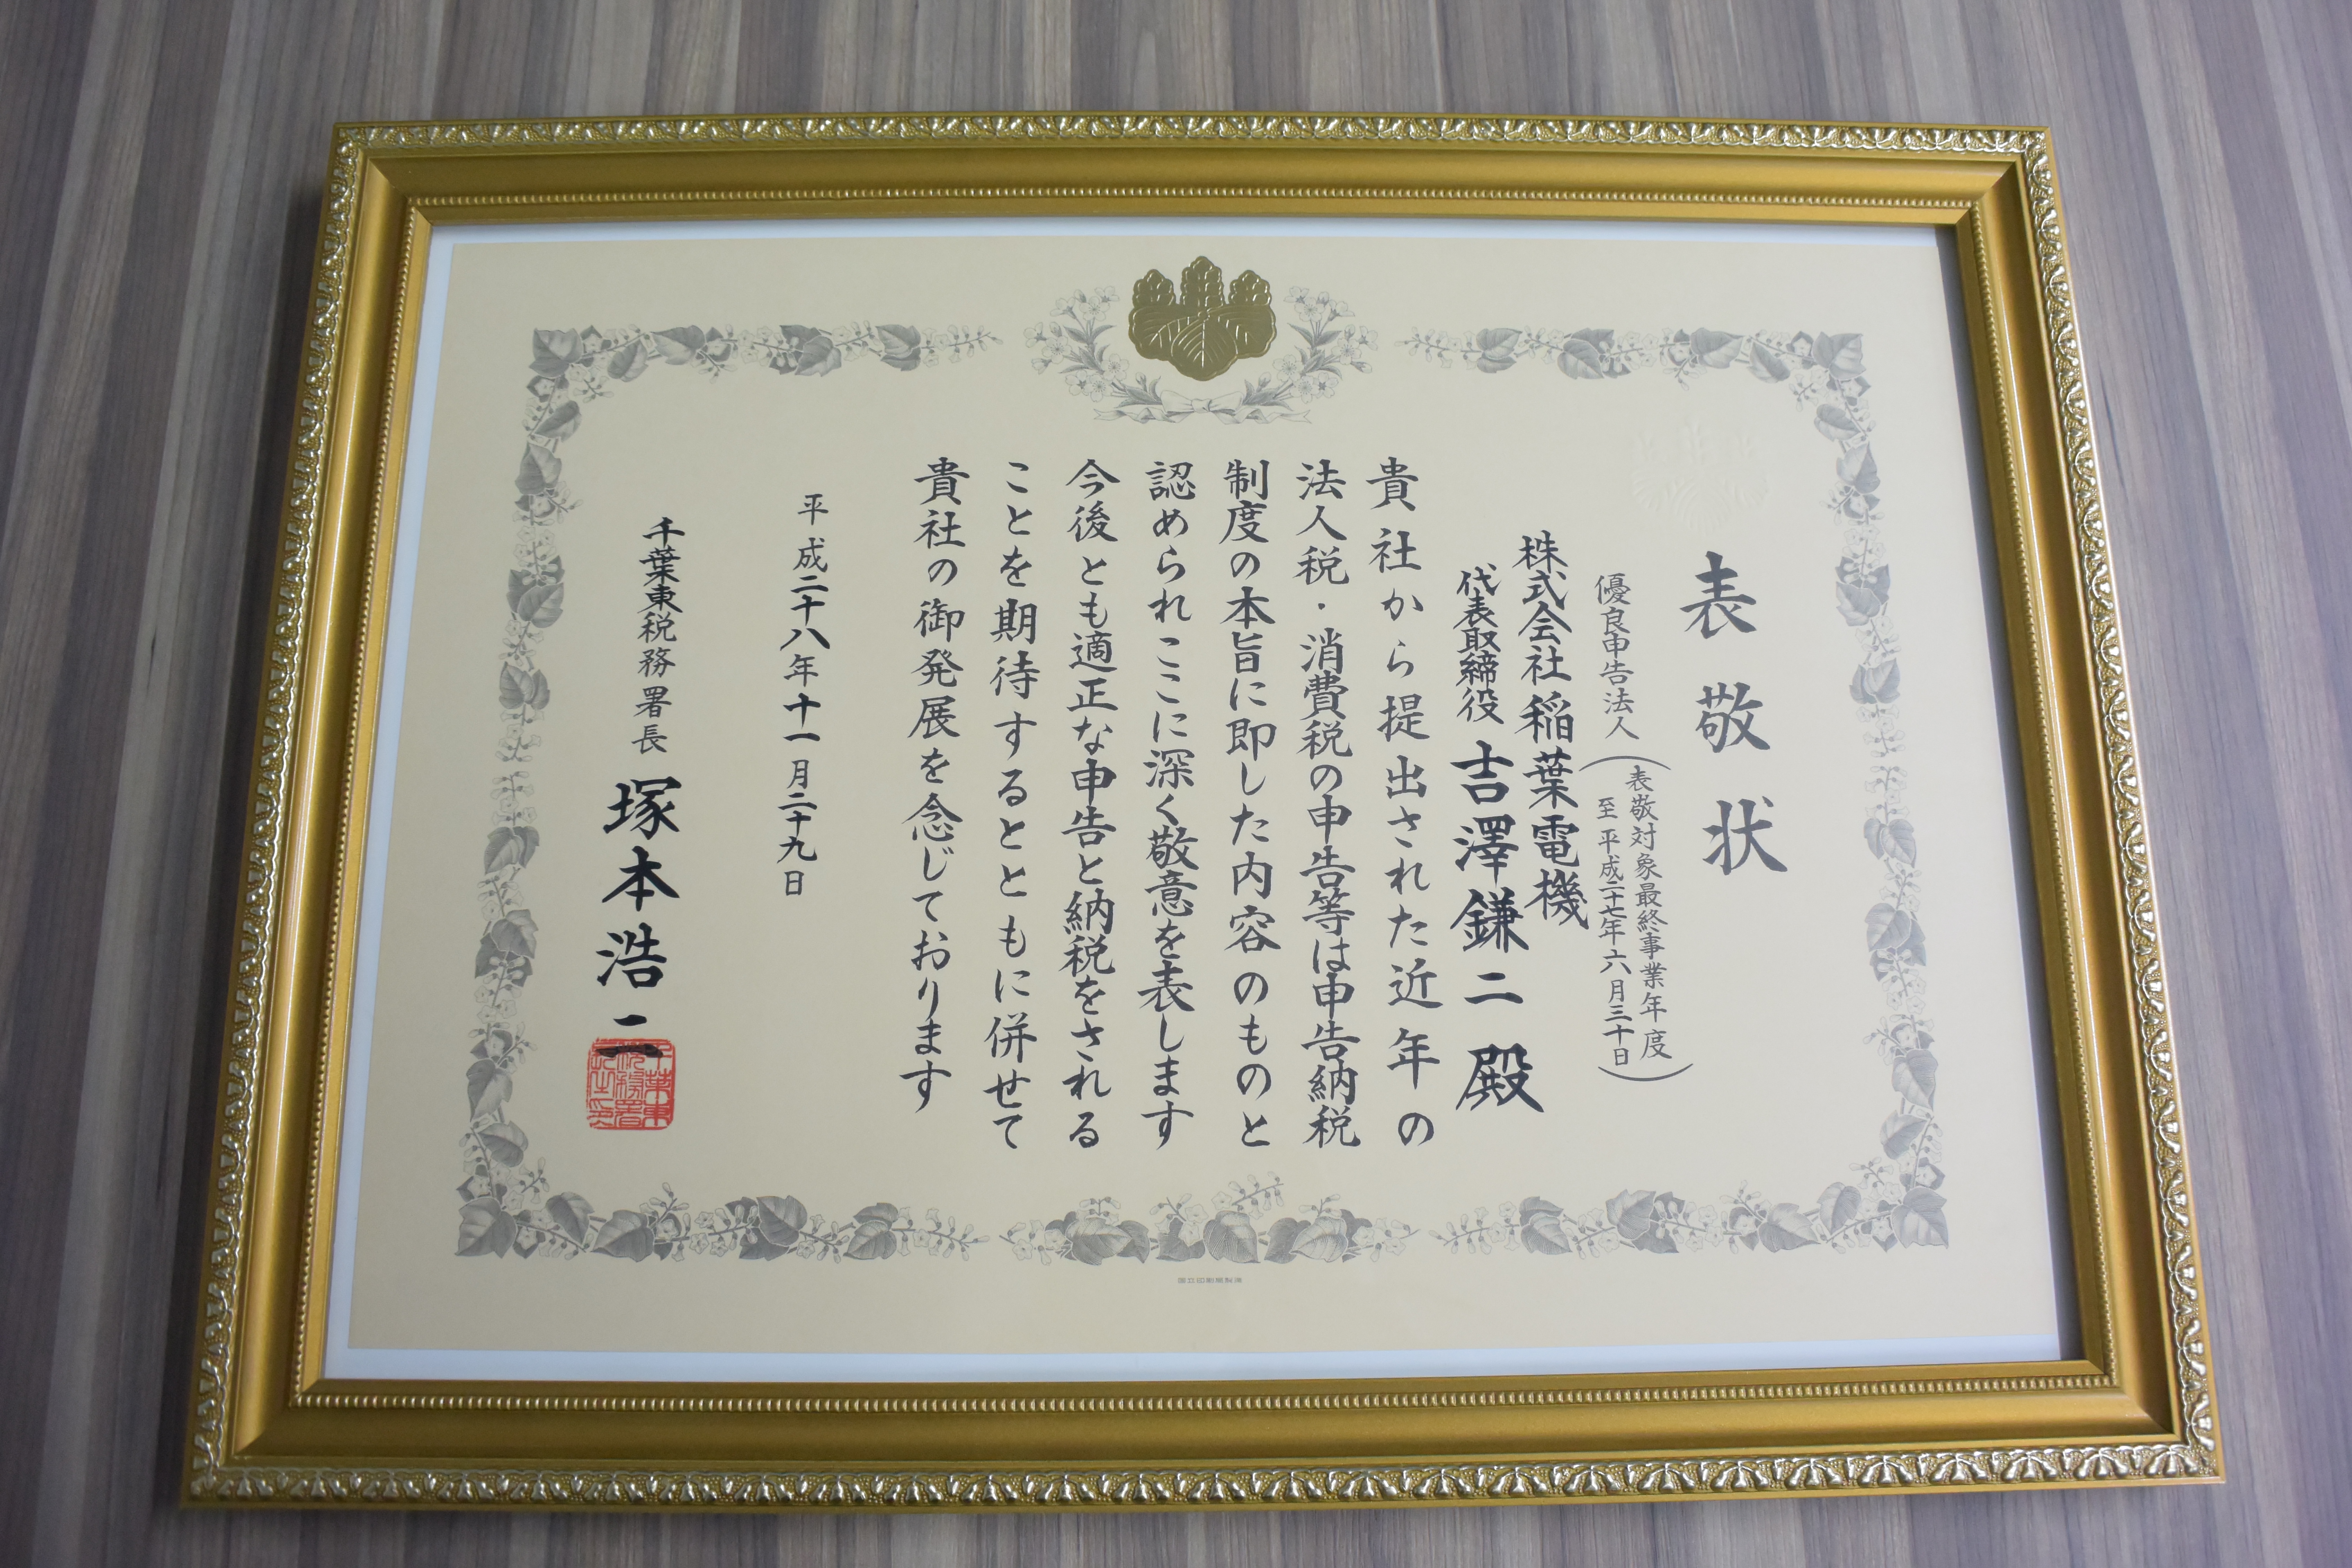 表敬状
優良申告法人
(表敬対象最終事業年度
至 平成二十七年六月三十日)
株式会社 稲葉電機
代表取締役 吉澤鎌二 殿
貴社から提出された近年の
法人税・消費税の申告等は申告納税
制度の本旨に即した内容のものと
認められここに深く敬意を表します
今後とも適正な申告と納税をされる
ことを期待するとともに併せて
貴社の御発展を念じております
平成二十八年十一月二十九日
千葉東税務署長 塚本浩二
千葉東
税務署
長之印
国立印刷局製造